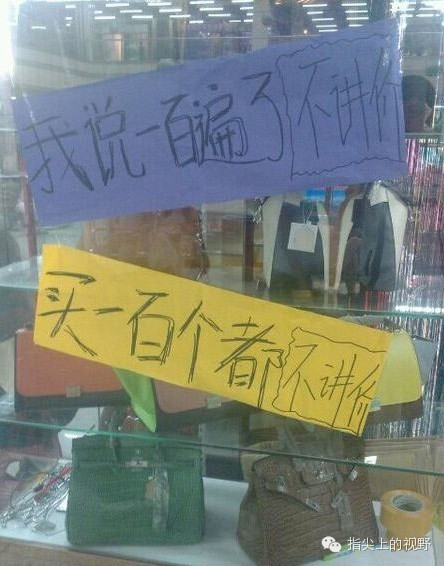 我说一百遍了不讲价
买一百个都不讲价
指尖上的视野